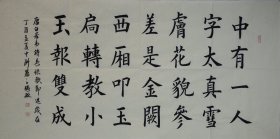 中有一人
字太真雪
膚花貌參
差是金闕
西廂叩玉
扃轉教小
玉報雙成
唐白居易詩長恨歌節選歲在
丁酉孟夏中浣